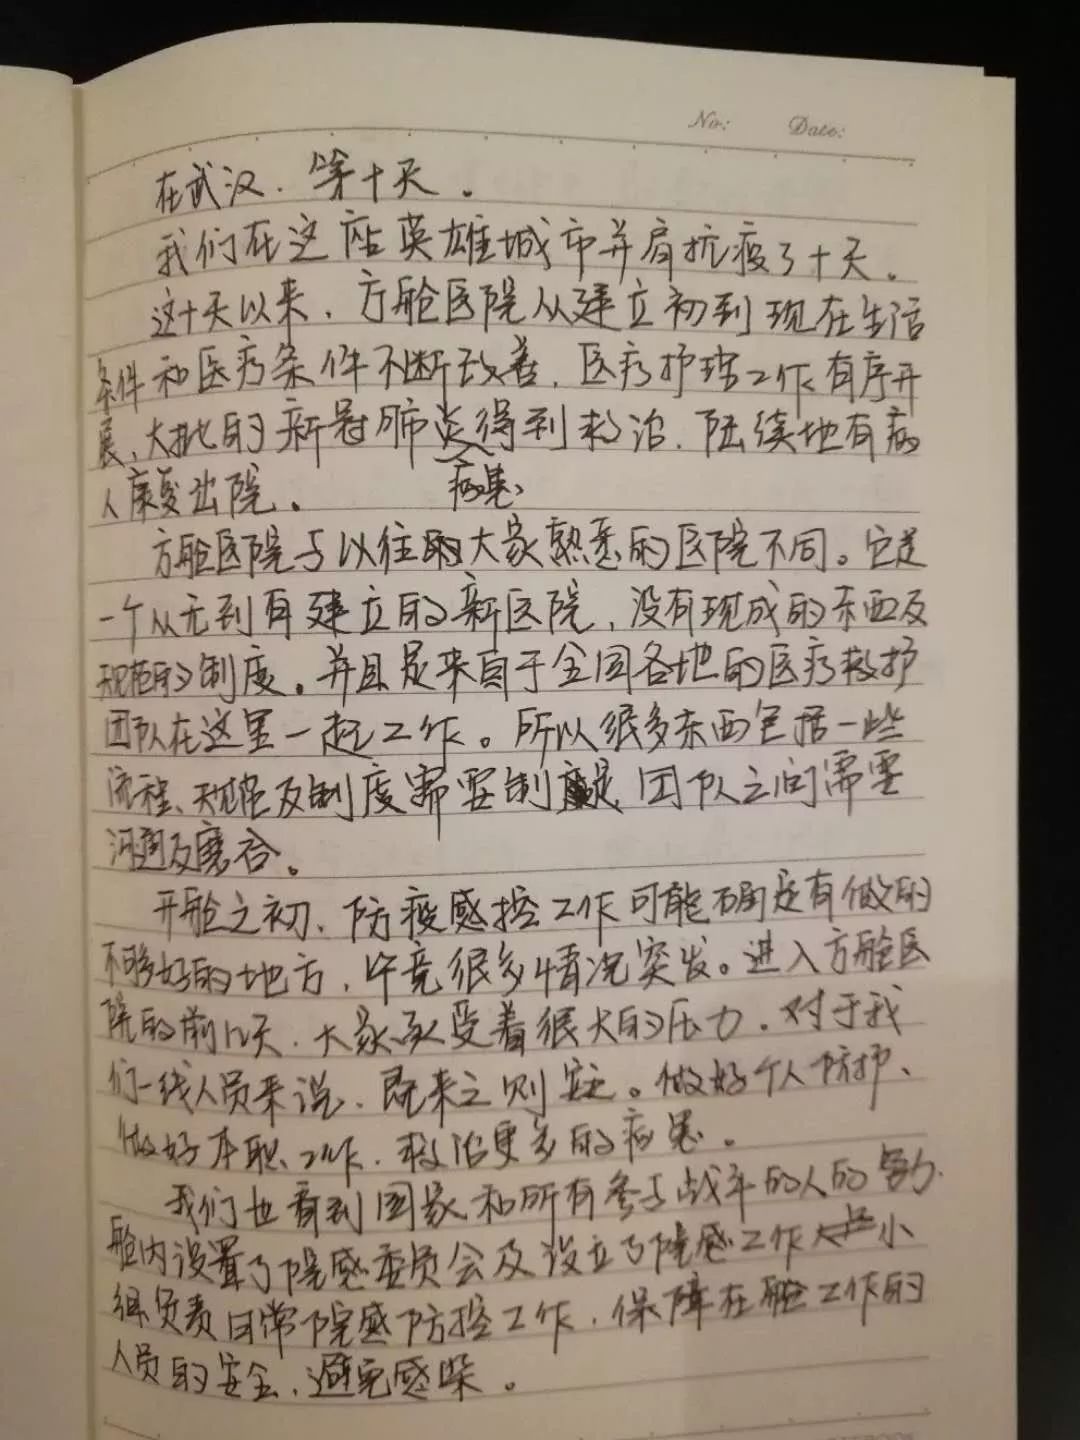 No:    Date:
在武汉.第十天。
我们在这座英雄城市并肩抗疫了十天。
这十天以来,方舱医院从建立初到现在生活
条件和医疗条件不断改善,医疗护理工作有序开
展,大批的新冠肺炎得到救治.陆续地有病
人康复出院。
病患
方舱医院与以往的大家熟悉的医院不同。它是
一个从无到有建立的新医院,没有现成的东西及
规范的制度。并且是来自于全国各地的医疗救护
团队在这里一起工作。所以很多东西包括一些
流程、规范及制度需要制定,团队之间需要
沟通及磨合。
开舱之初,防疫感控工作可能确是有做的
不够好的地方,毕竟很多情况突发。进入方舱医
院的前几天.大家承受着很大的压力.对于我
们一线人员来说,既来之则安。做好个人防护、
做好本职工作,救治更多的病患。
我们也看到国家和所有参与战斗的人的努力.
舱内设置了院感委员会及设立了院感工作小
组负责日常院感防控工作,保障在舱工作的
人员的安全,避免感染。